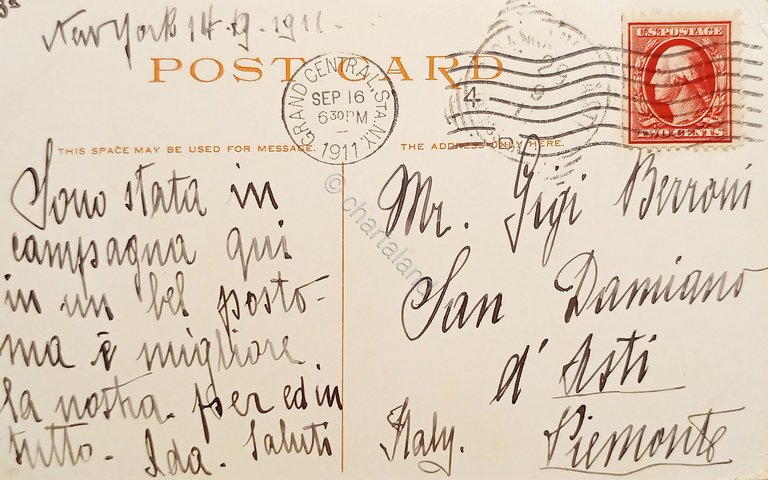 New York 14.9.1911
POST CARD
GRAND CENTRAL STA. N.Y.
SEP 16
6 30 PM
1911
4
U.S. POSTAGE
TWO CENTS
THIS SPACE MAY BE USED FOR MESSAGE.
THE ADDRESS ONLY HERE.
Sono stata in
campagna qui
in un bel posto-
ma è migliore
la nostra. per ed in
tutto. Ida. Saluti
Mr. Gigi Berroni
San Damiano
d'Asti
Italy. Piemonte
© chartaland